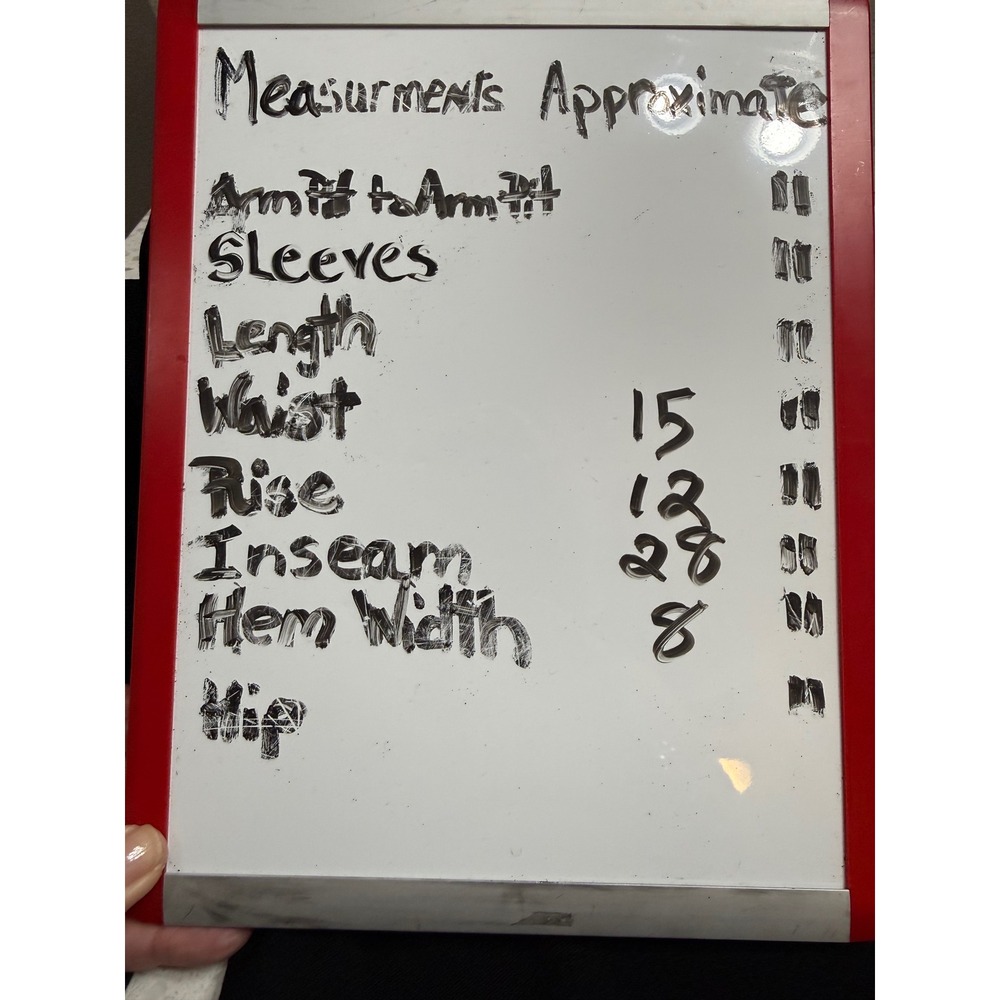 Measurments Approximate
ArmPit to ArmPit "
SLeeves "
Length "
Waist 15 "
Rise 12 "
Inseam 28 "
Hem Width 8 "
Hip "